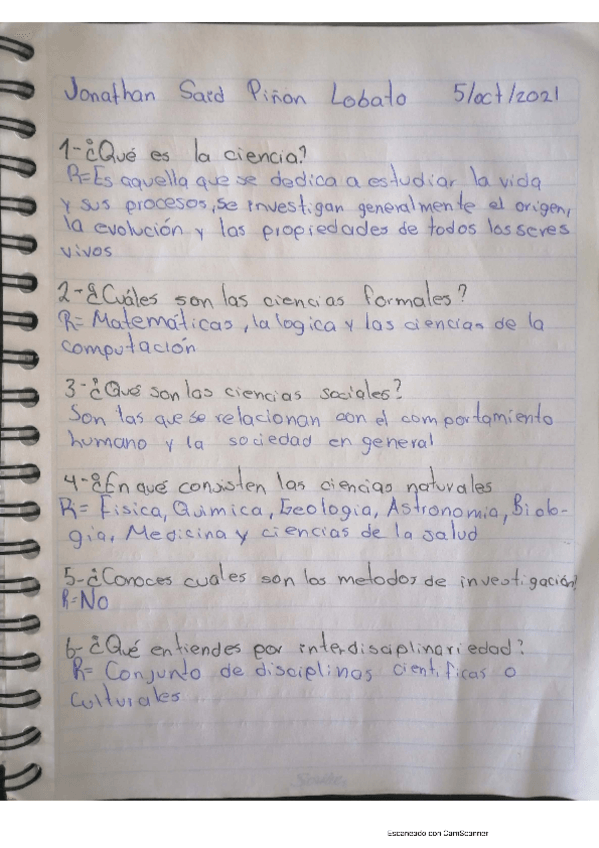 Jonathan Said Piñon Lobato 5/oct/2021
1-¿Qué es la ciencia?
R=Es aquella que se dedica a estudiar la vida
y sus procesos, se investigan generalmente el origen,
la evolución y las propiedades de todos los seres
vivos
2-¿Cuáles son las ciencias formales?
R= Matemáticas, la logica y las ciencias de la
computación
3-¿Qué son las ciencias sociales?
Son las que se relacionan con el comportamiento
humano y la sociedad en general
4-¿En qué consisten las ciencias naturales
R= Fisica, Quimica, Geologia, Astronomia, Biolo-
gia, Medicina y ciencias de la salud
5-¿Conoces cuales son los metodos de investigación?
R=No
6-¿Qué entiendes por interdisciplinariedad?
R= Conjunto de disciplinas cientificas o
culturales
Escaneado con CamScanner